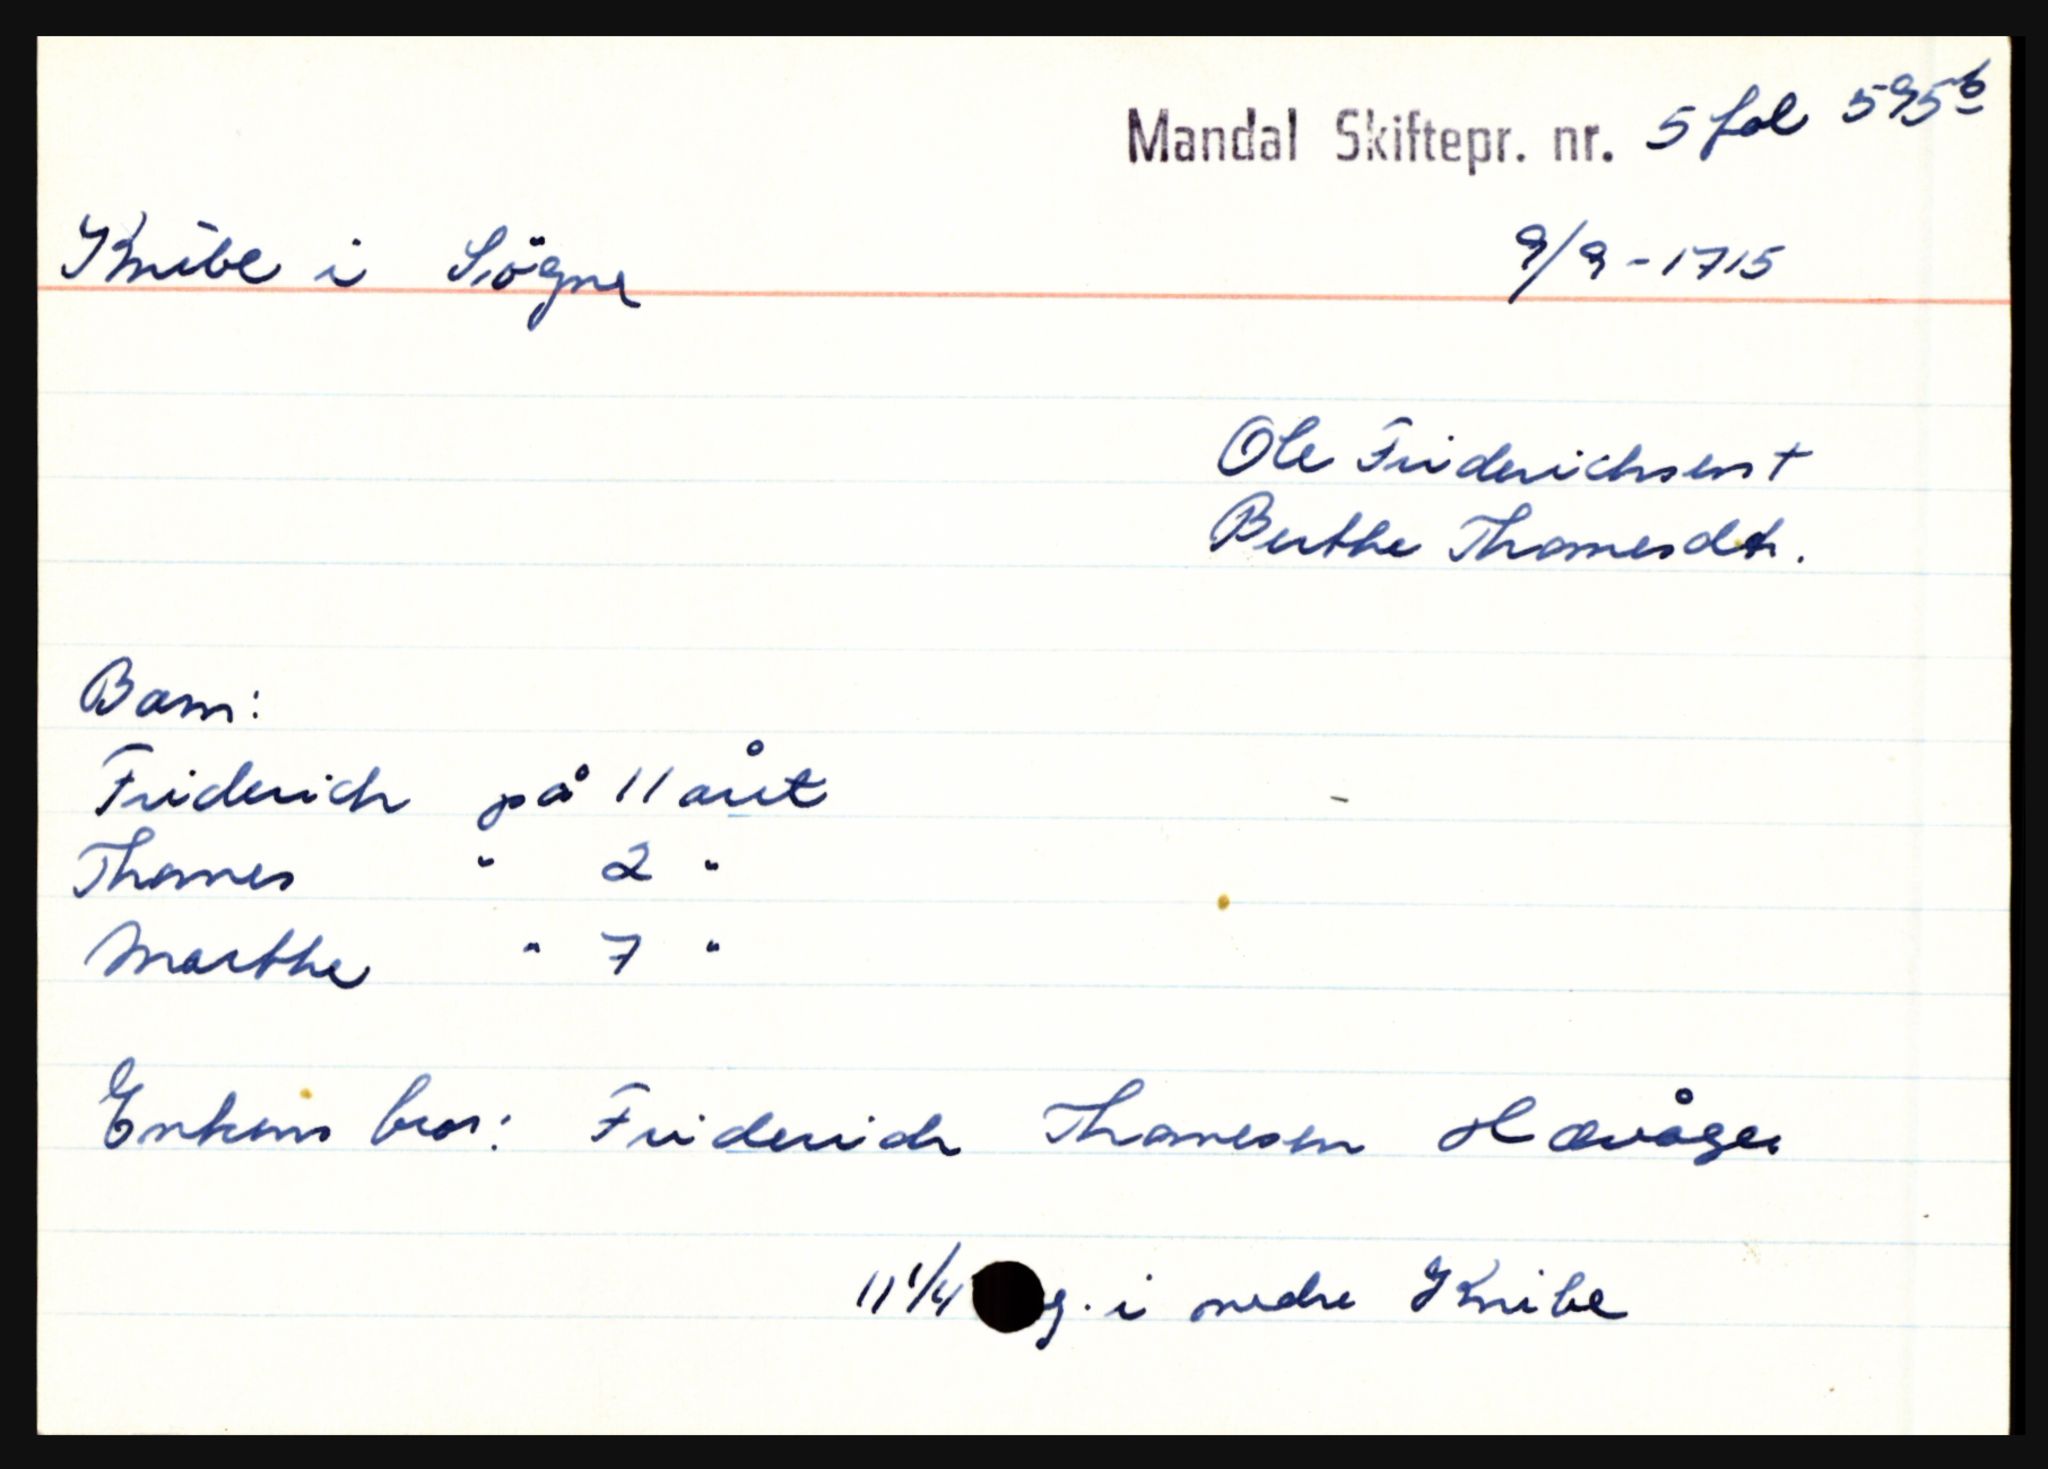 Mandal Skiftepr. nr. 5 fol 595b
Knibe i Søgne 9/9-1715
Ole Friderichsen +
Berthe Thomesdtr.
Barn:
Friderich på 11 året
Thomes " 2 "
Marthe " 7 "
Enkens bror: Friderich Thomesen Høvåge
11 1/4 g. i nedre Knibe